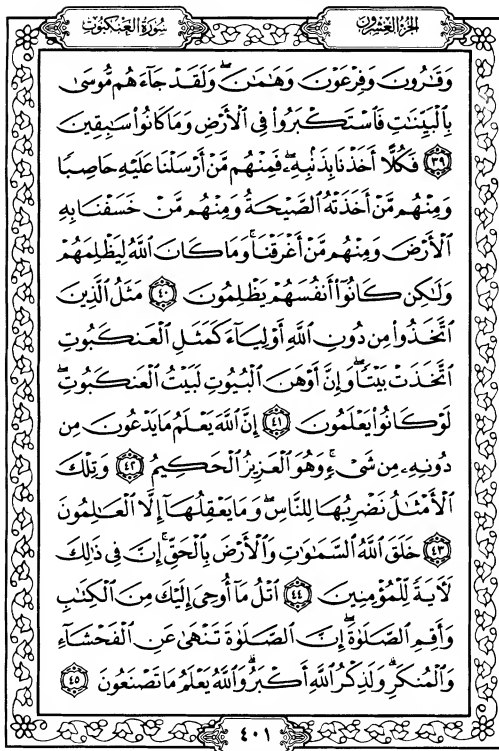 سُورَةُ العَنكبُوتِ
الجُزءُ العِشرُونَ
وَقَٰرُونَ وَفِرْعَوْنَ وَهَٰمَٰنَۖ وَلَقَدْ جَآءَهُم مُّوسَىٰ
بِٱلْبَيِّنَٰتِ فَٱسْتَكْبَرُوا۟ فِى ٱلْأَرْضِ وَمَا كَانُوا۟ سَٰبِقِينَ
٣٩ فَكُلًّا أَخَذْنَا بِذَنۢبِهِۦۖ فَمِنْهُم مَّنْ أَرْسَلْنَا عَلَيْهِ حَاصِبًا
وَمِنْهُم مَّنْ أَخَذَتْهُ ٱلصَّيْحَةُ وَمِنْهُم مَّنْ خَسَفْنَا بِهِ
ٱلْأَرْضَ وَمِنْهُم مَّنْ أَغْرَقْنَاۚ وَمَا كَانَ ٱللَّهُ لِيَظْلِمَهُمْ
وَلَٰكِن كَانُوٓا۟ أَنفُسَهُمْ يَظْلِمُونَ ٤٠ مَثَلُ ٱلَّذِينَ
ٱتَّخَذُوا۟ مِن دُونِ ٱللَّهِ أَوْلِيَآءَ كَمَثَلِ ٱلْعَنكَبُوتِ
ٱتَّخَذَتْ بَيْتًاۖ وَإِنَّ أَوْهَنَ ٱلْبُيُوتِ لَبَيْتُ ٱلْعَنكَبُوتِۖ
لَوْ كَانُوا۟ يَعْلَمُونَ ٤١ إِنَّ ٱللَّهَ يَعْلَمُ مَا يَدْعُونَ مِن
دُونِهِۦ مِن شَىْءٍۚ وَهُوَ ٱلْعَزِيزُ ٱلْحَكِيمُ ٤٢ وَتِلْكَ
ٱلْأَمْثَٰلُ نَضْرِبُهَا لِلنَّاسِۖ وَمَا يَعْقِلُهَآ إِلَّا ٱلْعَٰلِمُونَ
٤٣ خَلَقَ ٱللَّهُ ٱلسَّمَٰوَٰتِ وَٱلْأَرْضَ بِٱلْحَقِّۚ إِنَّ فِى ذَٰلِكَ
لَءَايَةً لِّلْمُؤْمِنِينَ ٤٤ ٱتْلُ مَآ أُوحِىَ إِلَيْكَ مِنَ ٱلْكِتَٰبِ
وَأَقِمِ ٱلصَّلَوٰةَۖ إِنَّ ٱلصَّلَوٰةَ تَنْهَىٰ عَنِ ٱلْفَحْشَآءِ
وَٱلْمُنكَرِۗ وَلَذِكْرُ ٱللَّهِ أَكْبَرُۗ وَٱللَّهُ يَعْلَمُ مَا تَصْنَعُونَ ٤٥
٤٠١